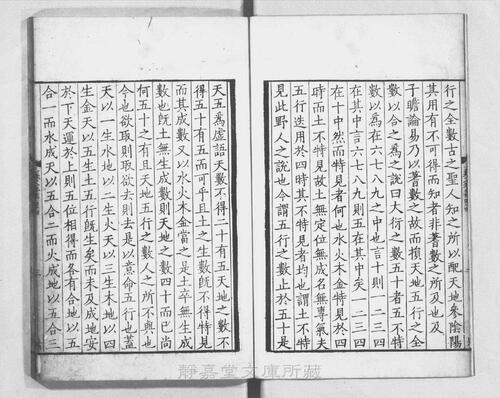 行之全數古之聖人知之所以配天地參陰陽
其用有不可得而知者非蓍數之所及也及
子瞻論易乃以蓍數之故而損天地五行之全
數以合之為之說曰大衍之數五十者五不特
數以為在六七八九之中也言十則一二三四
在其中言六七八九則五在其中矣一二三四
在十中然而特見者何也水火木金特見於四
時而土不特見故土無定位無成名無專氣夫
五行迭用於四時其不特見者均也謂土不特
見此野人之說也今謂五行之數止於五十是
天五為虛語天數不得二十有五天地之數不
得五十有五而可乎且土之生數既不得特見
而其成數又以水火木金當之是土卒無生成
數也既土無生成數則天地之數四十而已尚
何五十之有且天地五行之數人之所不與也
今也欲取則取欲去則去是以意命五行也蓋
天以一生水地以二生火天以三生木地以四
生金天以五生土五行既生矣而未及成地安
於下天運於上則五位相得而各有合地以五
合一而水成天以五合二而火成地以五合三
靜嘉堂文庫所藏